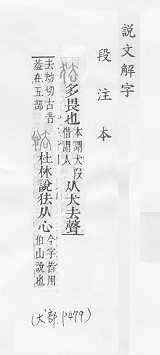 說文解字
段注本
㹤 多畏也本謂犬叚借謂人从犬去聲
去劫切古音葢在五部 怯 杜林說㹤从心今字皆用伯山說也
(犬部 P479)